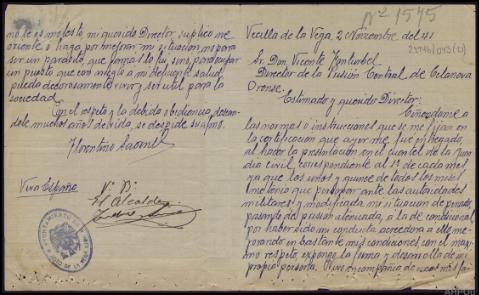 Nº 1575
Vecilla de la Vega, 2 Noviembre del 41
Sr. Don Vicente
Director de la Prisión Central de Celanova
Orense.
Estimado y querido Director:
Ciñendome a
las normas o instrucciones que se me fijan en
la certificación que ayer me fué entregada
al hacer la presentación en el cuartel de la Guar
dia civil, correspondiente al 1º de cada mes,
ya que los unos y quince de todos los meses
tengo que ante las autoridades
militares y modificada mi situación de penado,
pasando del a la de condicional,
por haber sido mi conducta acreedora a ello me
jorando en bastante mis condiciones, con el maxi
mo respeto, expongo la forma y desarrollo de mi
propia persona. Vivo en compañia de
no le es molesto, mi querido Director, suplico me
oriente o haga por mejorar mi situación, no para
ser un parásito, que jamas lo fuí, sino para ocupar
un puesto que con arreglo a mi salud,
pueda decorosamente vivir y ser util para la
sociedad.
Con el respeto y la debida obediencia, desean
dole muchos años de vida, se despide su afmo.
Florentino
Viva España
Vº Bº
El Alcalde